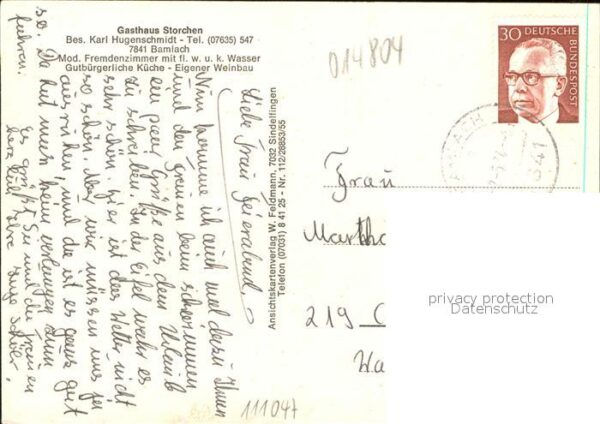 Gasthaus Storchen
Bes. Karl Hugenschmidt - Tel. (07635) 547
7841 Bamlach
Mod. Fremdenzimmer mit fl. w. u. k. Wasser
Gutbürgerliche Küche - Eigener Weinbau
014804
30 DEUTSCHE
BUNDESPOST
Liebe Frau Feierabend,
Nun komme ich auch mal dazu Ihnen
und den Frauen beim schwimmen
ein paar Grüße aus dem Urlaub
zu schreiben. In der Eifel war es
sehr schön. Hier ist das Wetter nicht
so schön. Aber wir müssen uns ja
ausruhen, und da ist es ganz gut
so. Da hat man kein verlangen zum
fahren.
Es grüßt Sie und die Frauen
herzlich Ihre
Ansichtskartenverlag W. Feldmann, 7032 Sindelfingen
Telefon (07031) 8 41 25 - Nr. 112/28853/55
Frau
Martha
219 C
Wa
privacy protection
Datenschutz
111047